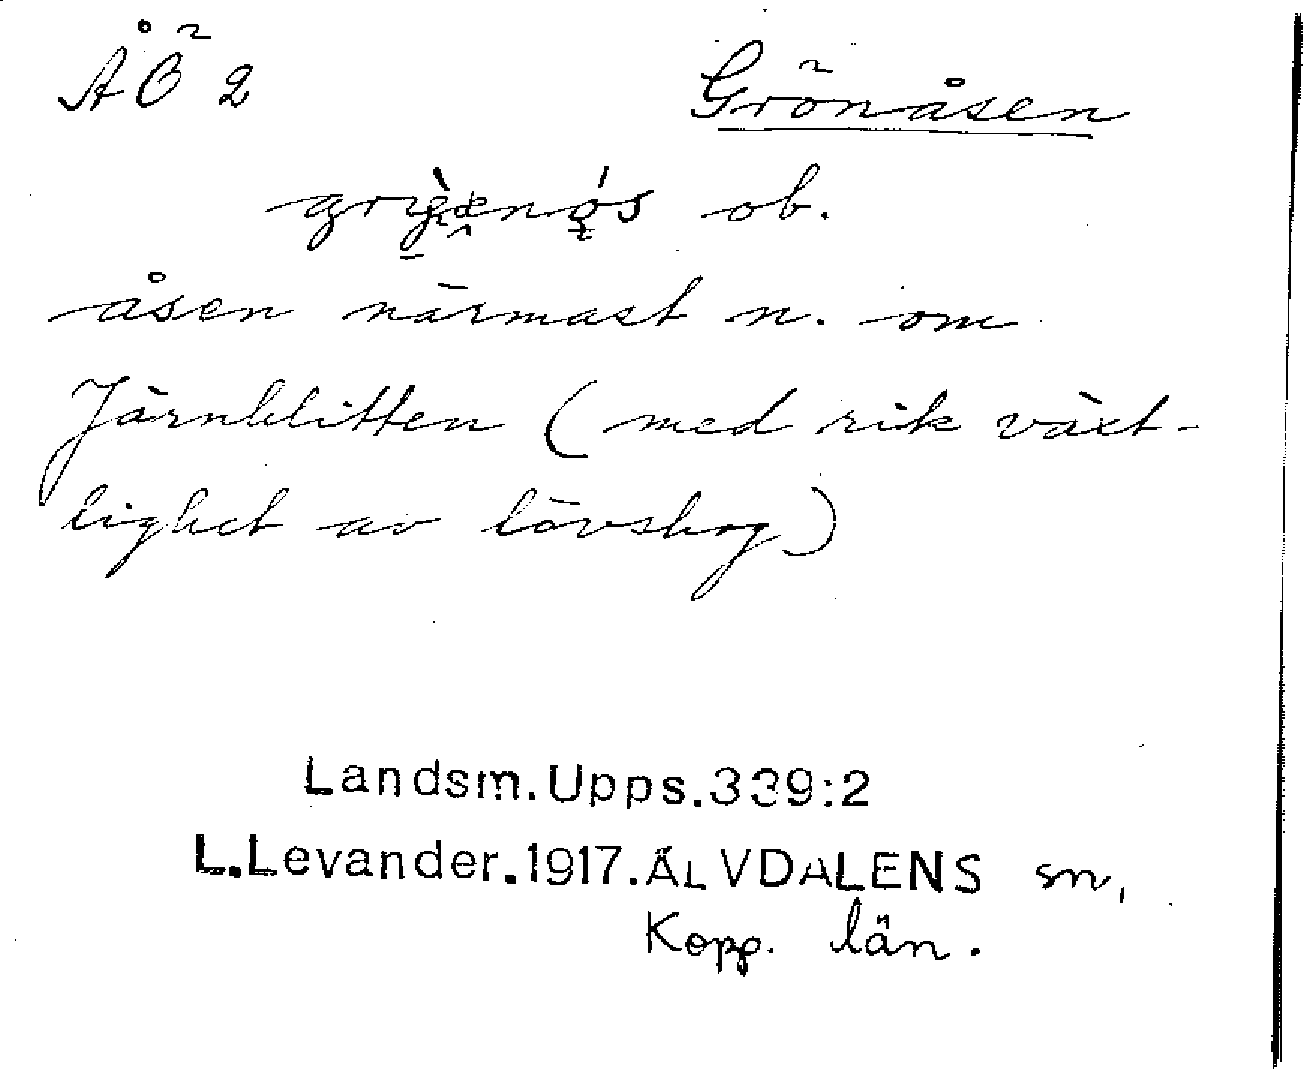 ÅÖ 2
Grönåsen
ob.
åsen närmast n. om
Järnklitten (med rik växt-
lighet av lövskog)
Landsm.Upps.339:2
L.Levander.1917.ÄLVDALENS sn,
Kopp. län.